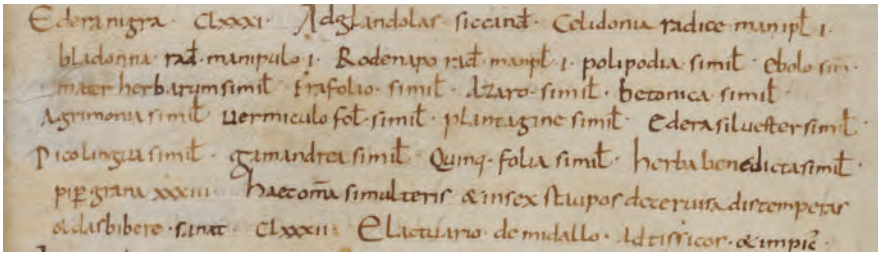 Edera nigra · CLXXXI · Ad glandolas siccand̄ · Celidonia radice manipł I ·
bladonna · rad̄ · manipulo · I · Rodenapo rad̄ · manpł · I · polipodia simił · Ebolo sim̄ ·
mater herbarum simił trafolio · simił · Azaro · simił · betonica · simił
Agrimonia simił · vermiculo foł · simił · plantagine simił · Edera siluester simił ·
Picolingua simił · gamandrea simił · Quinq · folia simił · herba benedicta simił ·
pip̄ grana XXXIII · haec om̄a simul teris & in sex staupos de ceruisa distemperas
& das bibere · sanat · CLXXXII · Elactuario de midallo · Ad tissicos · &